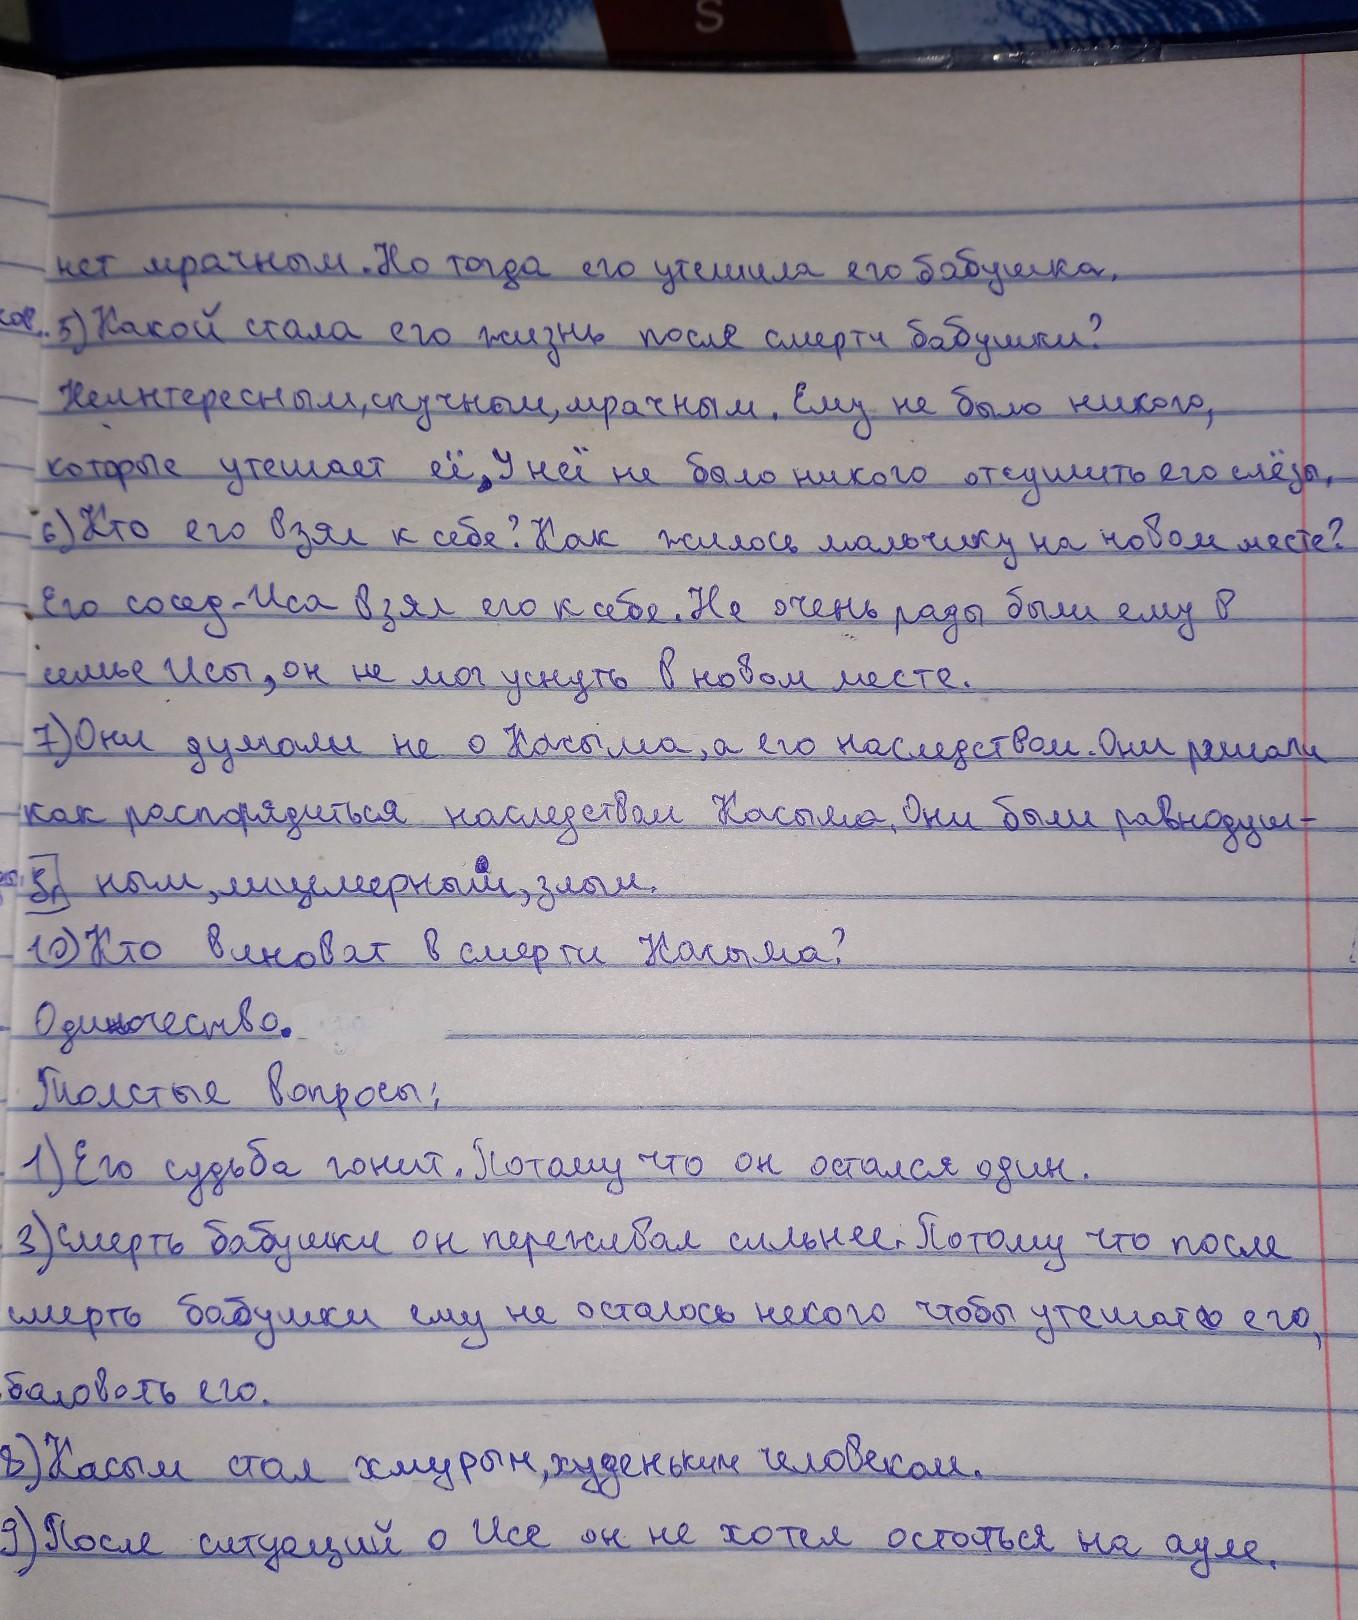 S
нет мрачным. Но тогда его утешила его бабушка.
5) Какой стала его жизнь после смерти бабушки?
Неинтересным, скучным, мрачным. Ему не было никого,
которые утешает её, У неё не было никого отсушить его слёзы.
6) Кто его взял к себе? Как жилось мальчику на новом месте?
Его сосед-Иса взял его к себе. Не очень рады были ему в
семье Исы, он не мог уснуть в новом месте.
7) Они думали не о Касыма, а его наследством. Они решали
как распорядиться наследством Касыма. Они были равнодуш-
ным, лицемерный, злым.
10) Кто виноват в смерти Касыма?
Одиночество.
Толстые вопросы:
1) Его судьба гонит. Потому что он остался один.
3) Смерть бабушки он переживал сильнее. Потому что после
смерть бабушки ему не осталось некого чтобы утешать его,
баловать его.
8) Касым стал хмурын, худеньким человеком.
9) После ситуаций о Исе он не хотел остаться на ауле.